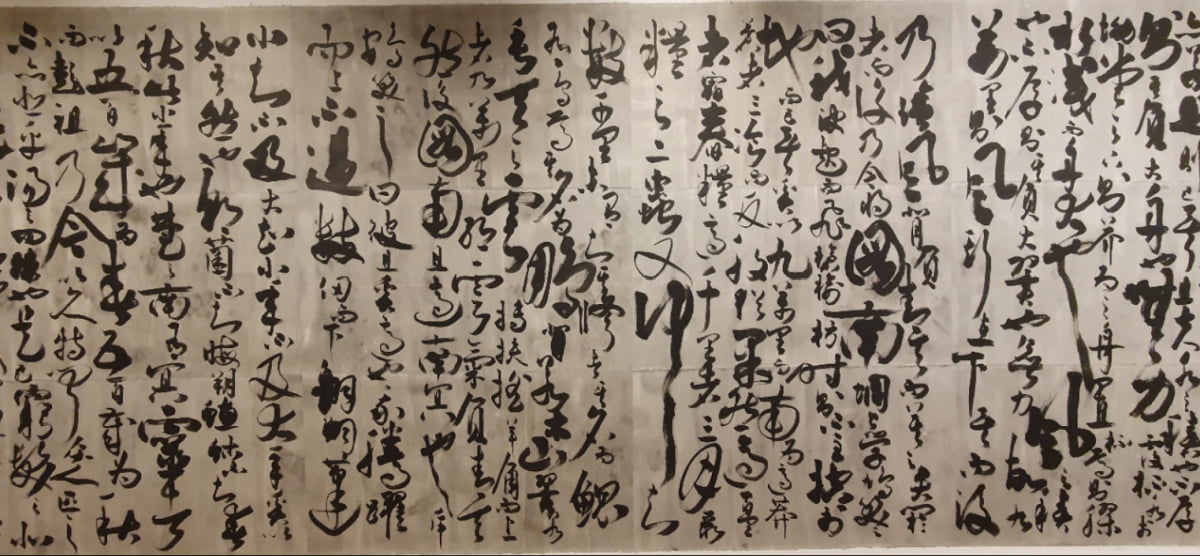 亦若是則已矣且夫水之積也不厚
則其負大舟也無力覆杯水於
坳堂之上則芥為之舟置杯焉則膠
水淺而舟大也風之積
也不厚則其負大翼也無力故九
萬里則風斯在下矣而後
乃今培風背負青天而莫之夭閼
者而後乃今將圖南蜩與學鳩笑之
曰我決起而飛搶榆枋時則不至控於
地而已矣奚以九萬里而南為適莽
蒼者三飡而反腹猶果然適百里
者宿舂糧適千里者三月聚
糧之二蟲又何知
數千里未有知其修者其名為鯤
有鳥焉其名為鵬背若泰山翼若
垂天之雲摶扶搖羊角而上
者九萬里絕雲氣負青天
然後圖南且適南冥也斥
鴳笑之曰彼且奚適也我騰躍
而上不過數仞而下翱翔蓬
小知不及大知小年不及大年奚以
知其然也朝菌不知晦朔蟪蛄不知春
秋此小年也楚之南有冥靈者
以五百歲為春五百歲為秋
而彭祖乃今以久特聞眾人匹之
不亦悲乎湯之問棘也是已窮髮之北